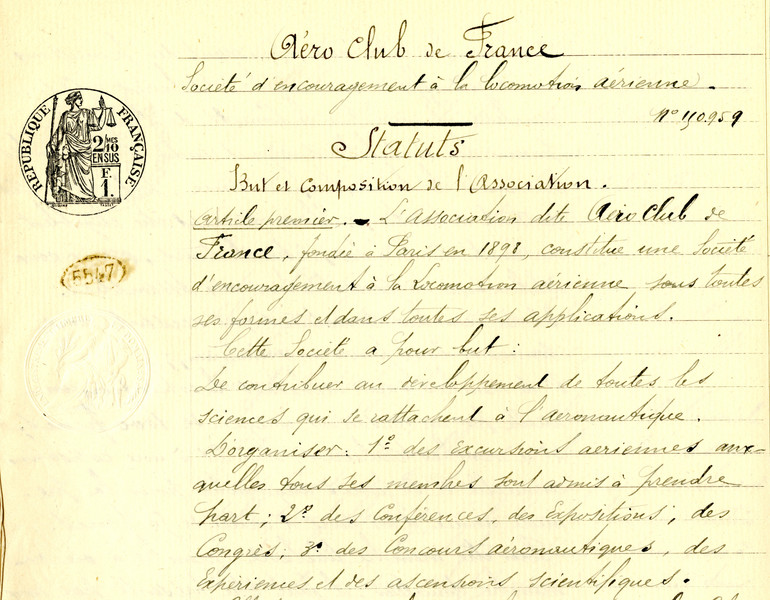 Aéro Club de France
Société d'encouragement à la locomotion aérienne.
N° 110.959
Statuts
But et composition de l'Association.
RÉPUBLIQUE FRANÇAISE
2/10 MES
EN SUS
F.
1.
Article premier. - L'Association dite Aéro Club de
France, fondée à Paris en 1898, constitue une Société
d'encouragement à la Locomotion aérienne sous toutes
ses formes et dans toutes ses applications.
5547
Cette Société a pour but :
De contribuer au développement de toutes les
sciences qui se rattachent à l'aéronautique.
D'organiser: 1° des excursions aériennes aux-
quelles tous ses membres sont admis à prendre
part; 2° des Conférences, des Expositions, des
Congrès; 3° des Concours aéronautiques, des
Expériences et des ascensions scientifiques.